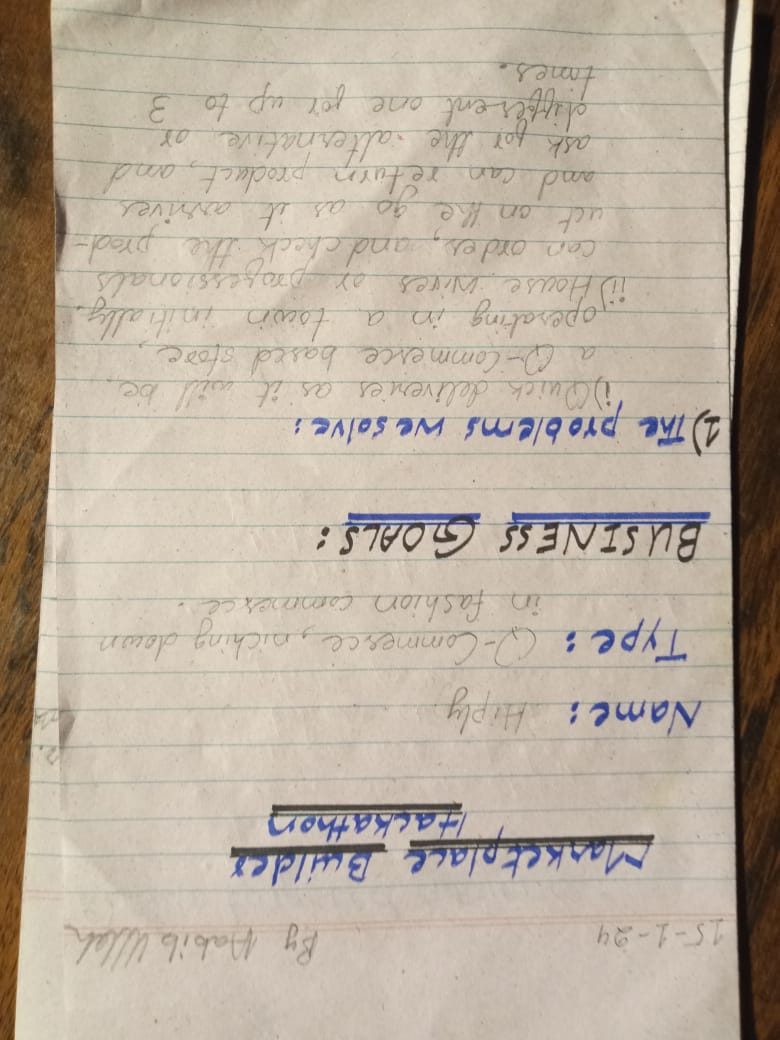 15-1-24 By Habib Ullah
Marketplace Builder
Hackathon
Name: Hiply.
Type: Q-Commerce, niching down
in fashion commerce.
BUSINESS GOALS:
1) The problems we solve:
i) Quick deliveries as it will be
a Q-Commerce based store,
operating in a town initially.
ii) House wives or professionals
can order, and check the prod-
uct on the go as it arrives
and can return product, and
ask for the alternative or
different one for up to 3
times.